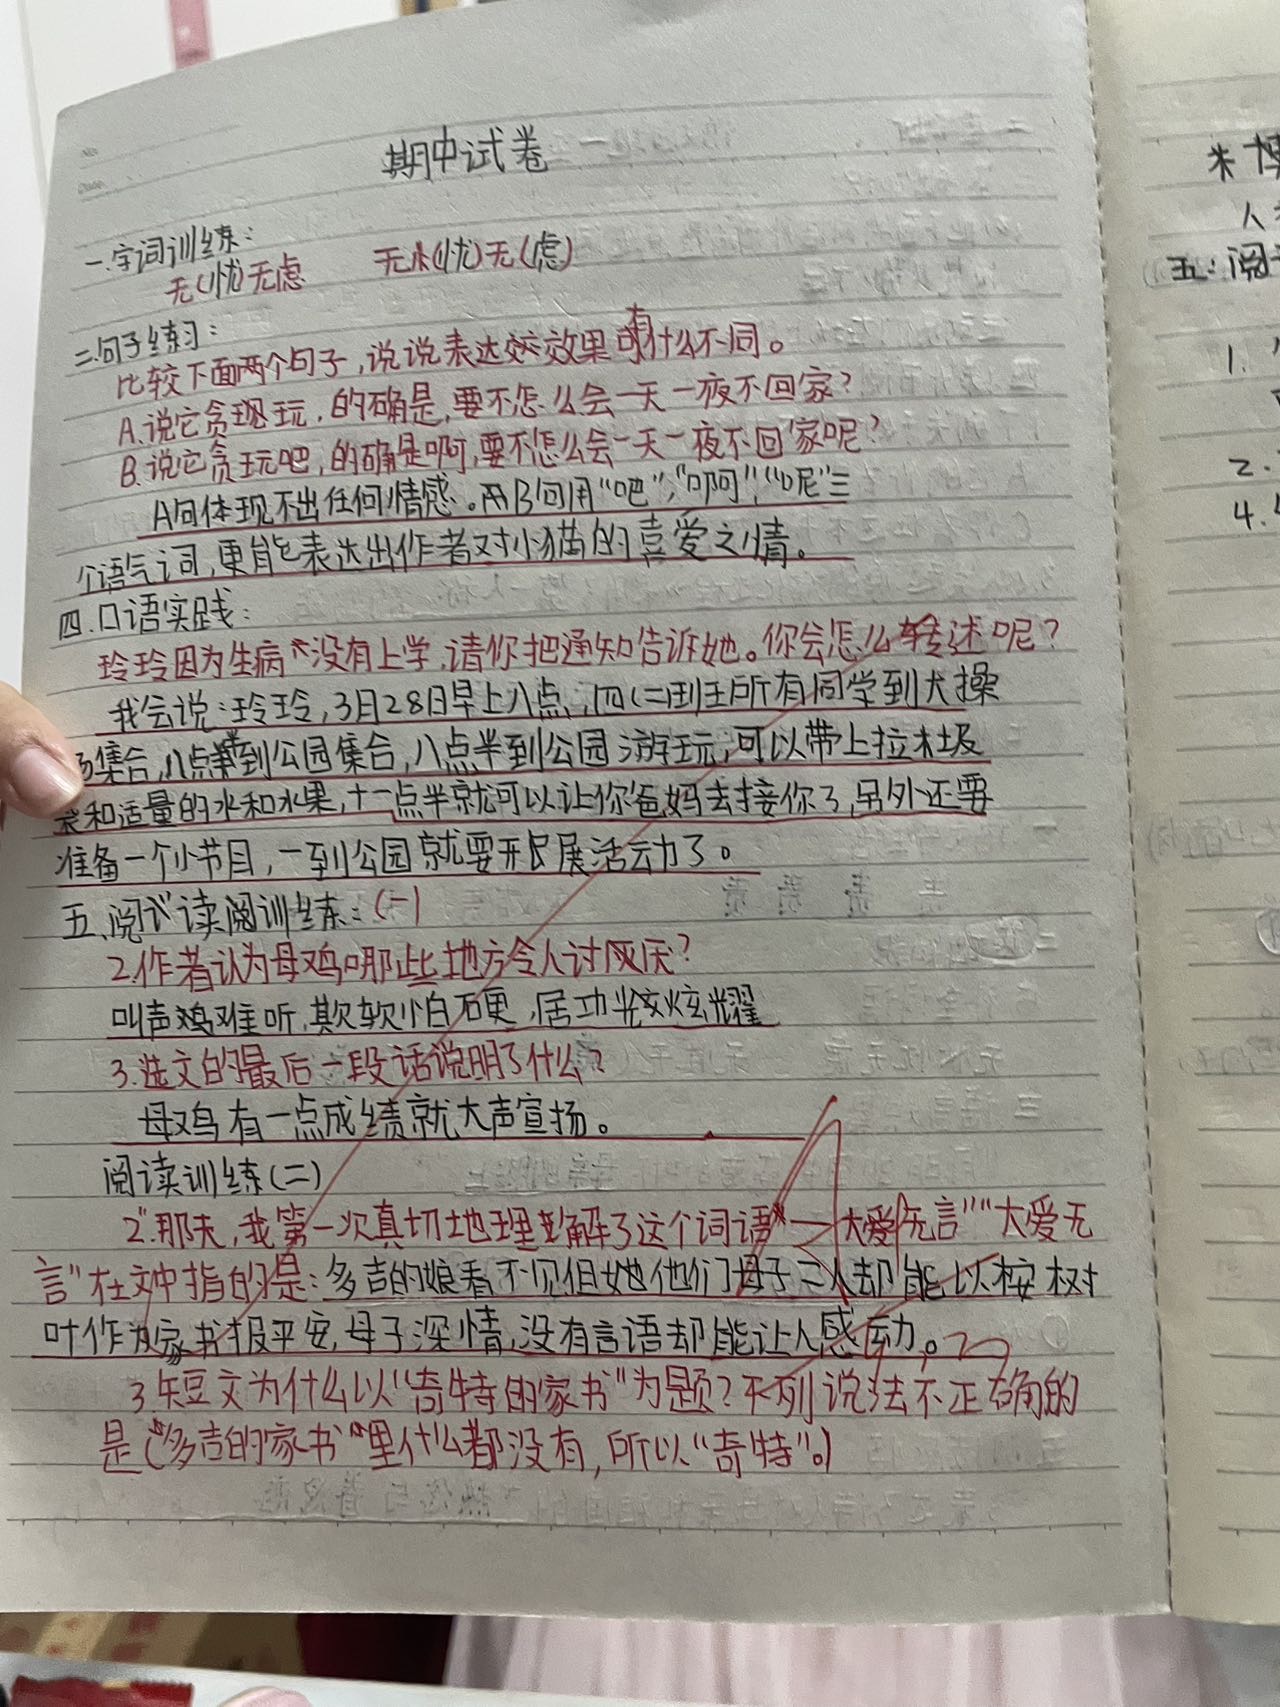 期中试卷
一.字词训练：
无(忧)无虑 无(忧)无(虑)
二.句子练习：
比较下面两个句子，说说表达效果有什么不同。
A.说它贪玩，的确是，要不怎么会一天一夜不回家？
B.说它贪玩吧，的确是啊，要不怎么会一天一夜不回家呢？
A句体现不出任何情感。而B句用“吧”，“啊”，“呢”三
个语气词，更能表达出作者对小猫的喜爱之情。
四.口语实践：
玲玲因为生病没有上学，请你把通知告诉她。你会怎么转述呢？
我会说：玲玲，3月28日早上八点，四(二)班所有同学到大操
场集合，八点到公园集合，八点半到公园游玩，可以带上垃圾
袋和适量的水和水果，十一点半就可以让你爸妈去接你了，另外还要
准备一个小节目，一到公园就要开展活动了。
五、阅读训练：(一)
2.作者认为母鸡哪些地方令人讨厌？
叫声难听，欺软怕硬，居功炫耀
3.选文的最后一段话说明了什么？
母鸡有一点成绩就大声宣扬。
阅读训练(二)
2.那天，我第一次真切地理解了这个词语——大爱无言”“大爱无
言”在文中指的是：多吉的娘看不见但她他们母子二人却能以桉树
叶作为家书报平安，母子深情，没有言语却能让人感动。
3.短文为什么以“奇特的家书”为题？下列说法不正确的
是(“多吉的家书”里什么都没有，所以“奇特”。)
米博
五：阅
1.
2.
4.